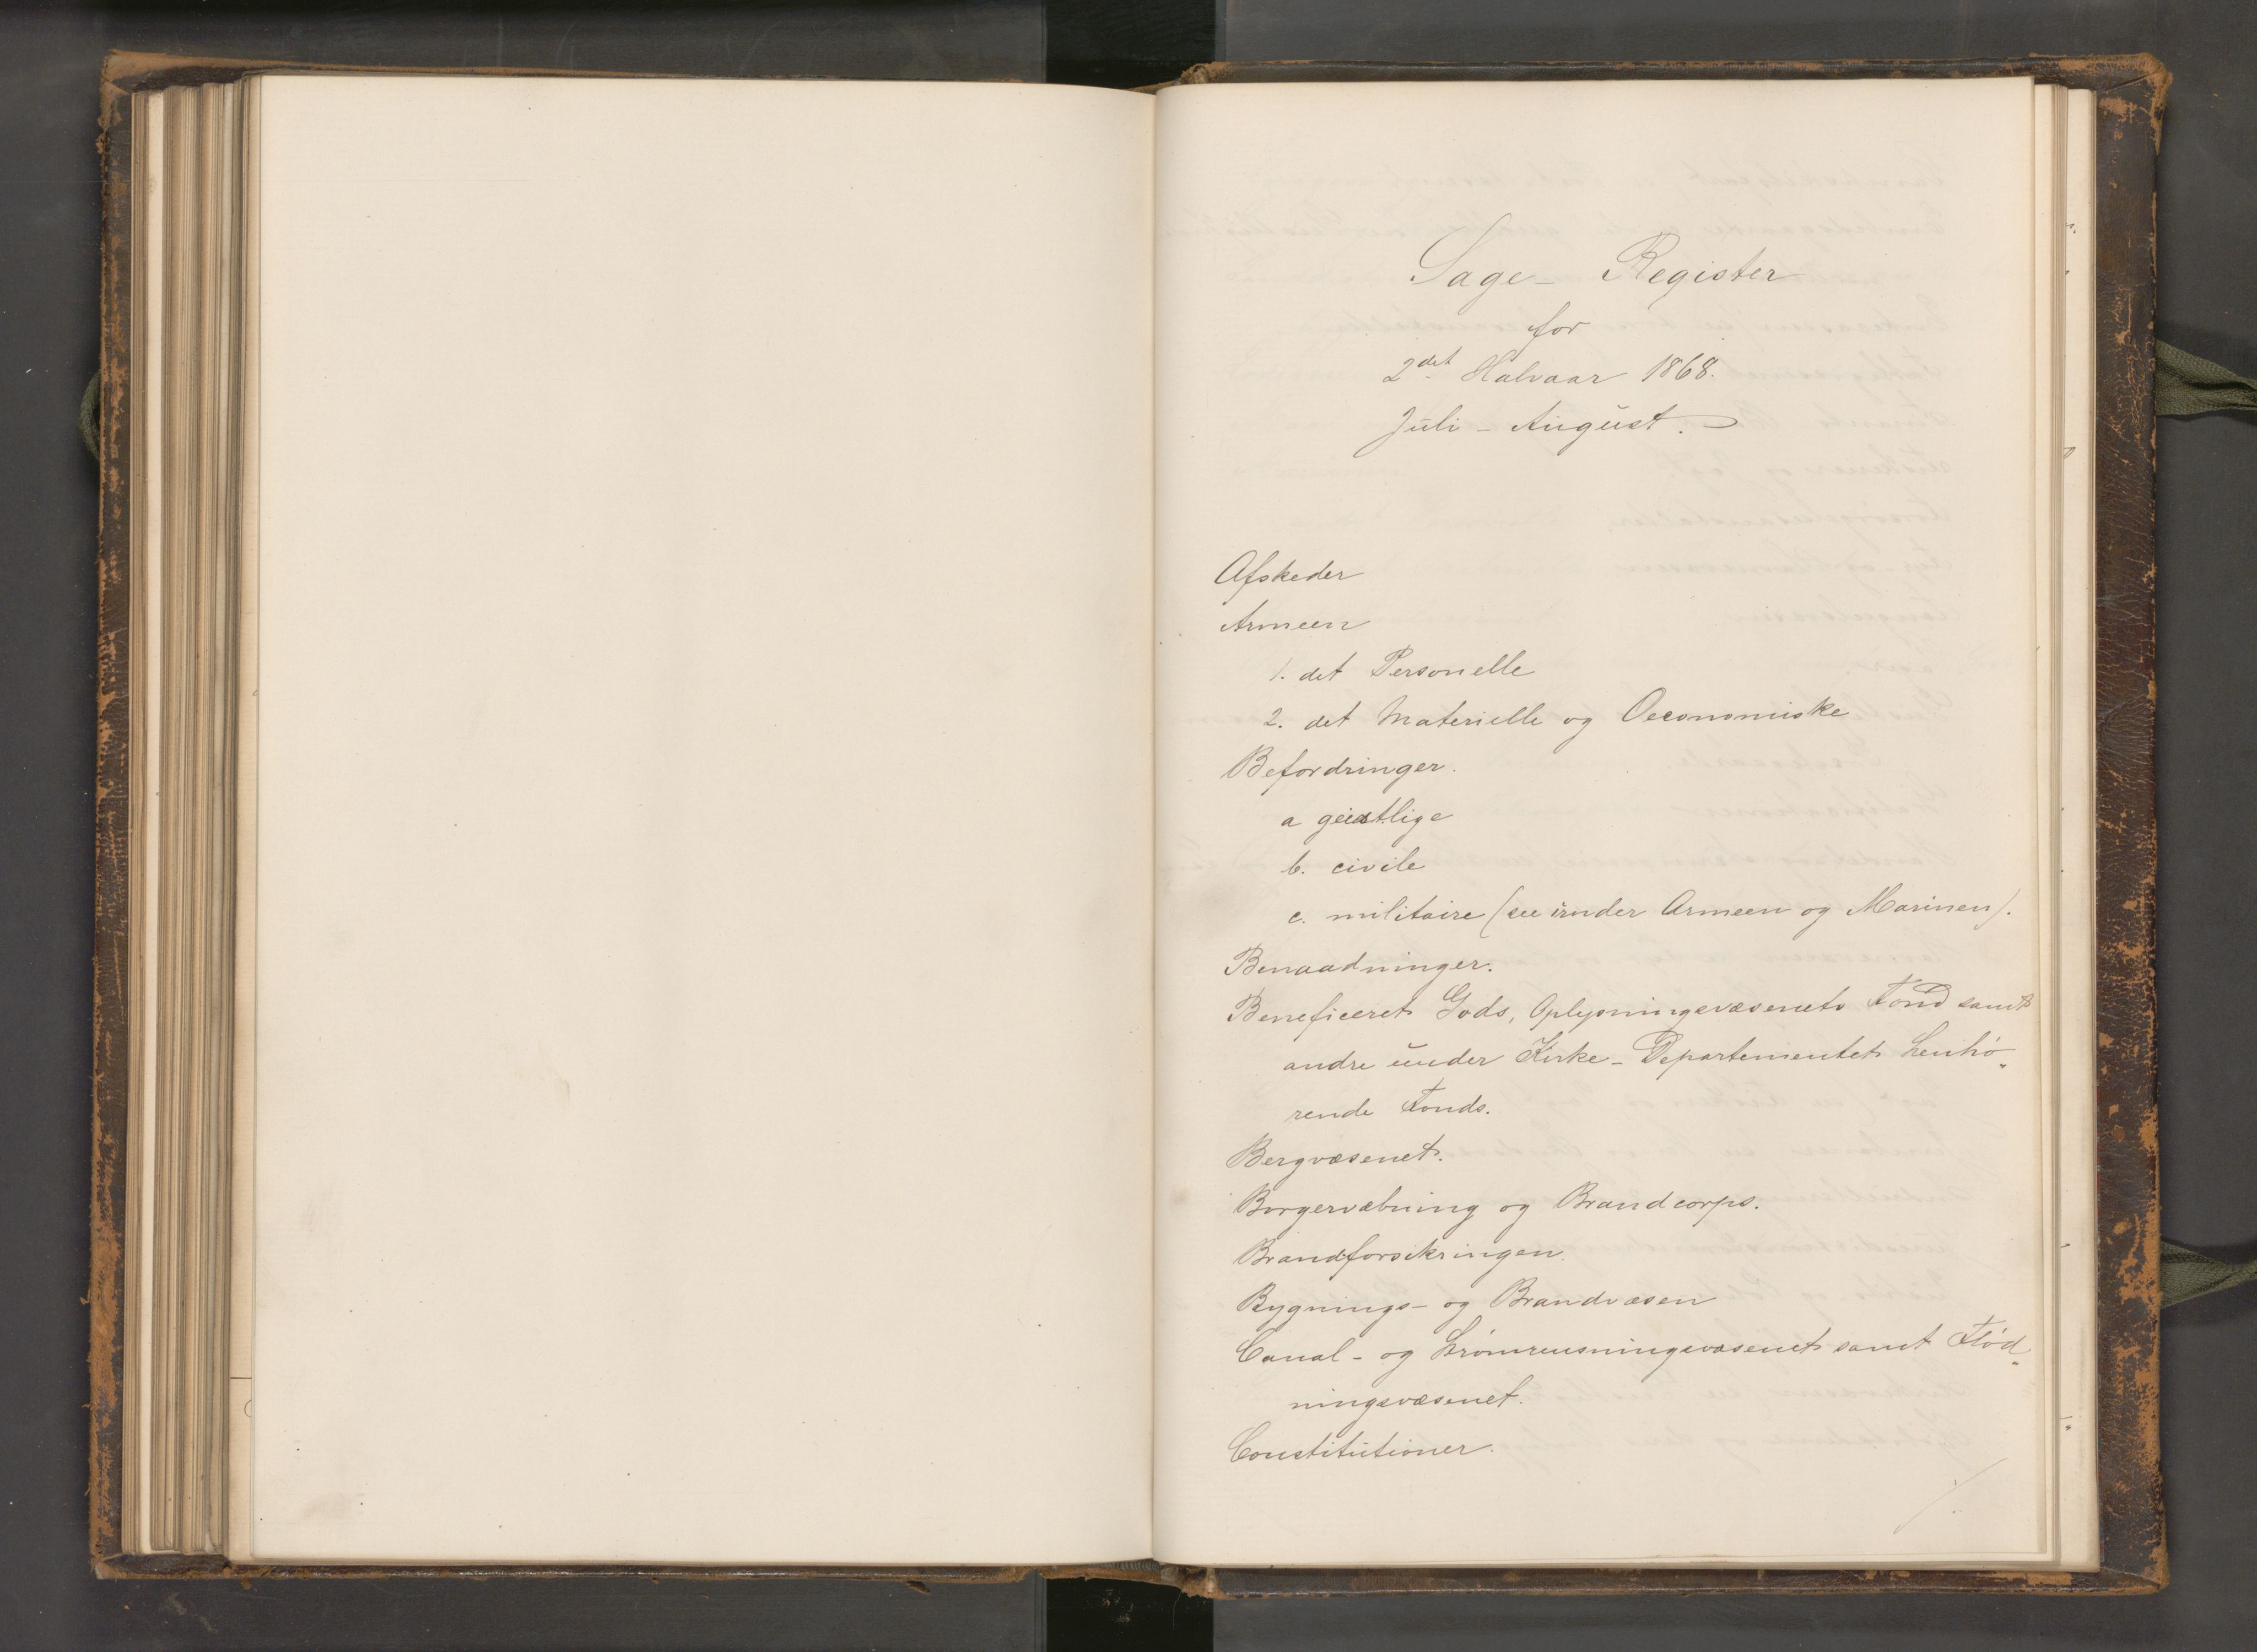 Sage- Register
for
2det Halvaar 1868.
Juli - August.
Afskeder
Armeen
1. det Personelle
2. det Materielle og Oeconomiske
Befordringer.
a geistlige
b. civile
c. militaire (see under Armeen og Marinen).
Benaadninger.
Beneficeret Gods, Oplysningsvæsenets Fond samt
andre under Kirke-Departementet henhø„
rende Fonds.
Bergvæsenet.
Borgervæbning og Brandcorps.
Brandforsikringen.
Bygnings- og Brandvæsen
Canal- og Strømrensningsvæsenet samt Flød„
ningsvæsenet.
Constitutioner.